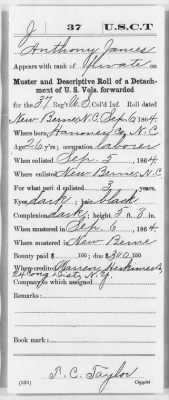 J 37 U.S.C.T
Anthony James
Appears with rank of Private on
Muster and Descriptive Roll of a Detach-
ment of U. S. Vols. forwarded
for the 37 Reg't U.S. Col'd Inf. Roll dated
New Berne, N.C. Sep. 6, 1864.
Where born Co., N.C.
Age 26 y'rs; occupation laborer
When enlisted Sep. 5, 1864
Where enlisted New Berne, N.C.
For what peri d enlisted 3 years.
Eyes dark; hair black
Complexion dark; height 5 ft. 8 in.
When mustered in Sep. 6, 1864
Where mustered in New Berne
Bounty paid $ 100; due $ 300 100
Where credited Warren, Herkimer Co.
Company to which assigned
Remarks:
Book mark:
(339) T. C. Taylor
Copyist